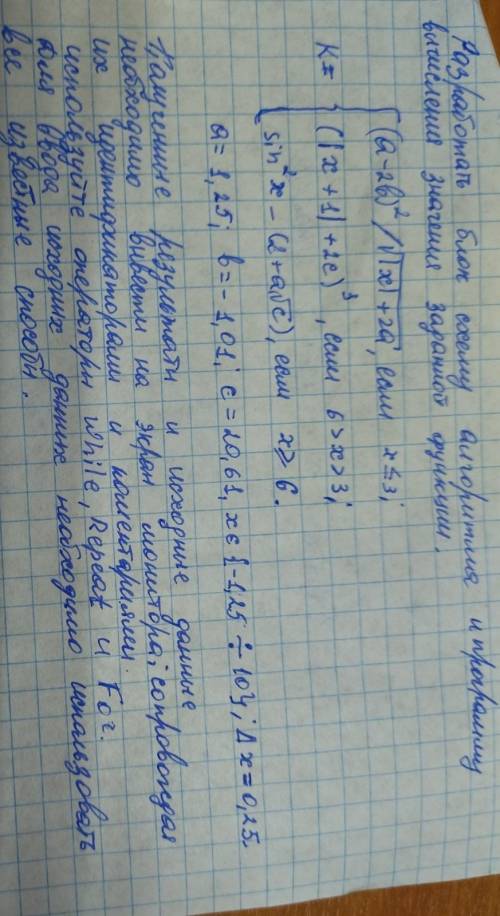 Разработать блок схему алгоритма и программу
вычисления значения заданной функции.
(a-2b)²/√|x|+2a, если x≤3;
K= { (|x+1|+2c)³, если 6>x>3;
sin²x-(2+a√c), если x≥6.
a=1,25; b=-1,01; c=20,61, x∈{-1,25÷10}; Δx=0,25.
Полученные результаты и исходные данные
необходимо вывести на экран монитора, сопровождая
их идентификаторами и коментариями.
используйте операторы while, Repeat и For.
для ввода исходных данных необходимо использовать
все известные способы.